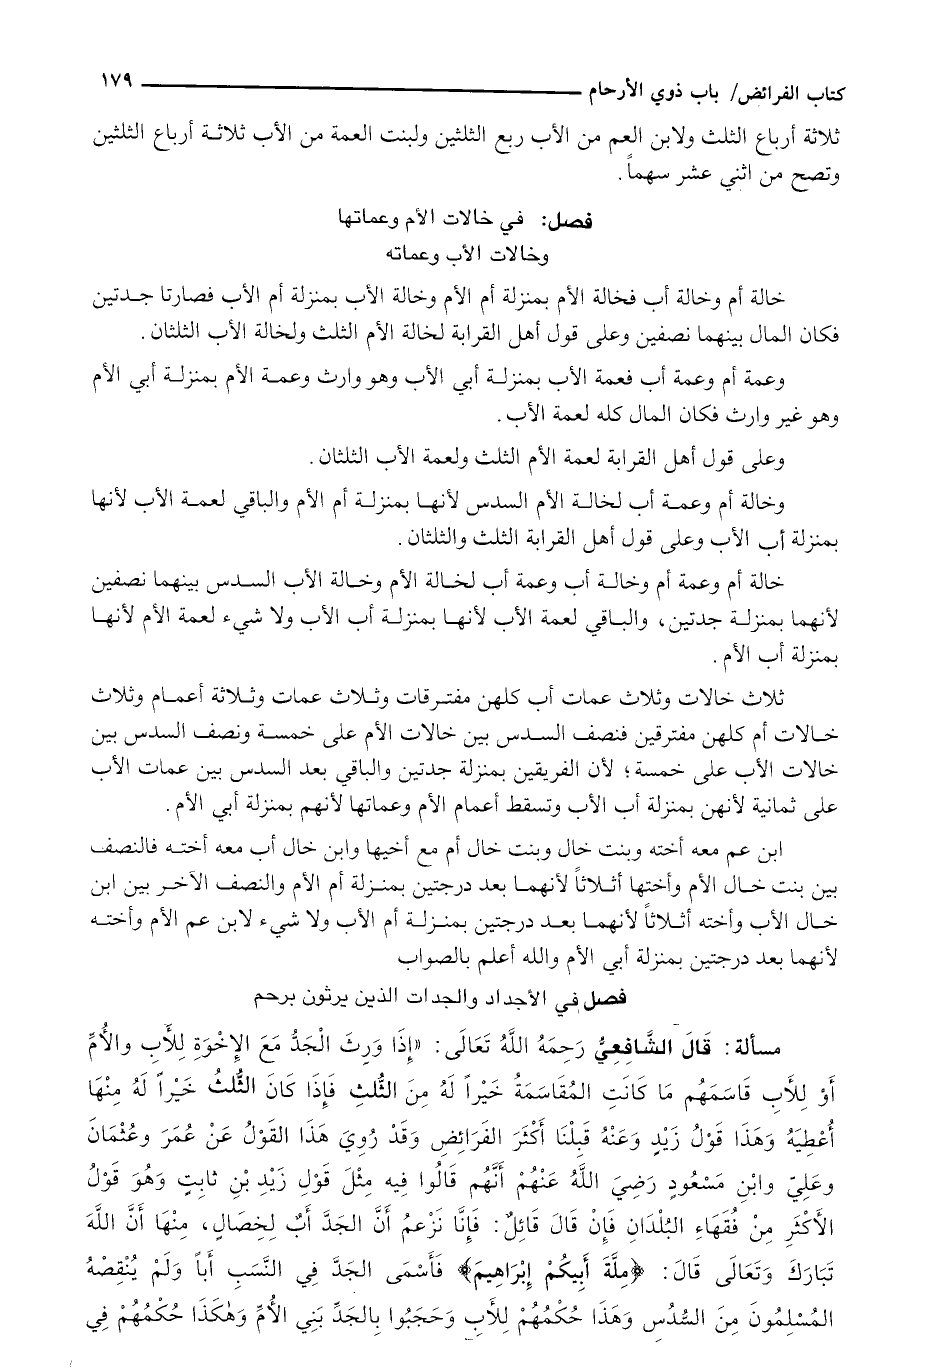 كتاب الفرائض/ باب ذوي الأرحام ١٧٩
ثلاثة أرباع الثلث ولابن العم من الأب ربع الثلثين ولبنت العمة من الأب ثلاثة أرباع الثلثين
وتصح من اثني عشر سهماً.
فصل: في خالات الأم وعماتها
وخالات الأب وعماته
خالة أم وخالة أب فخالة الأم بمنزلة أم الأم وخالة الأب بمنزلة أم الأب فصارتا جدتين
فكان المال بينهما نصفين وعلى قول أهل القرابة لخالة الأم الثلث ولخالة الأب الثلثان.
وعمة أم وعمة أب فعمة الأب بمنزلة أبي الأب وهو وارث وعمة الأم بمنزلة أبي الأم
وهو غير وارث فكان المال كله لعمة الأب.
وعلى قول أهل القرابة لعمة الأم الثلث ولعمة الأب الثلثان.
وخالة أم وعمة أب لخالة الأم السدس لأنها بمنزلة أم الأم والباقي لعمة الأب لأنها
بمنزلة أب الأب وعلى قول أهل القرابة الثلث والثلثان.
خالة أم وعمة أم وخالة أب وعمة أب لخالة الأم وخالة الأب السدس بينهما نصفين
لأنهما بمنزلة جدتين، والباقي لعمة الأب لأنها بمنزلة أب الأب ولا شيء لعمة الأم لأنها
بمنزلة أب الأم.
ثلاث خالات وثلاث عمات أب كلهن مفترقات وثلاث عمات وثلاثة أعمام وثلاث
خالات أم كلهن مفترقين فنصف السدس بين خالات الأم على خمسة ونصف السدس بين
خالات الأب على خمسة؛ لأن الفريقين بمنزلة جدتين والباقي بعد السدس بين عمات الأب
على ثمانية لأنهن بمنزلة أب الأب وتسقط أعمام الأم وعماتها لأنهم بمنزلة أبي الأم.
ابن عم معه أخته وبنت خال وبنت خال أم مع أخيها وابن خال أب معه أخته فالنصف
بين بنت خال الأم وأختها أثلاثاً لأنهما بعد درجتين بمنزلة أم الأم والنصف الآخر بين ابن
خال الأب وأخته أثلاثاً لأنهما بعد درجتين بمنزلة أم الأب ولا شيء لابن عم الأم وأخته
لأنهما بعد درجتين بمنزلة أبي الأم والله أعلم بالصواب
فصل في الأجداد والجدات الذين يرثون برحم
مسألة: قَالَ الشَّافعِيُّ رَحِمَهُ اللَّهُ تَعَالَى: «إِذَا وَرِثَ الْجَدُّ مَعَ الإِخْوَةِ لِلأَبِ والأُمِّ
أَوْ لِلأَبِ قَاسَمَهُم مَا كَانَتِ المُقَاسَمَةُ خَيْراً لَهُ مِنَ الثُّلثِ فَإِذَا كَانَ الثُّلُثُ خَيْراً لَهُ مِنْهَا
أُعْطِيَهُ وَهَذَا قَوْلُ زَيْدٍ وَعَنْهُ قَبْلنَا أَكْثَرَ الفَرَائِضِ وَقَدْ رُوِيَ هَذَا القَوْلُ عَنْ عُمَرَ وعُثْمَانَ
وعَلِيّ وابْنِ مَسْعُودٍ رَضِيَ اللَّهُ عَنْهُمْ أَنَّهُم قَالُوا فِيه مِثْلَ قَوْلِ زَيْدِ بْنِ ثابِتٍ وَهُوَ قَوْلُ
الأَكْثَرِ مِنْ فُقَهَاءِ البُلْدَانِ فَإِنْ قَالَ قَائِلٌ: فَإِنَّا نَزْعمُ أَنَّ الجَدَّ أَبٌ لِخِصَالٍ، مِنْهَا أَنَّ اللَّهَ
تَبَارَكَ وَتَعَالَى قَالَ: ﴿مِلَّةَ أَبِيكُمْ إِبْرَاهِيمَ﴾ فَأَسْمَى الجَدَّ فِي النَّسَبِ أَباً وَلَمْ يُنْقِصْهُ
المُسْلِمُونَ مِنَ السُّدُسِ وَهَذَا حُكْمُهُمْ لِلأَبِ وَحَجَبُوا بِالجَدِّ بَنِي الأُمِّ وَهٰكَذَا حُكْمُهُمْ فِي